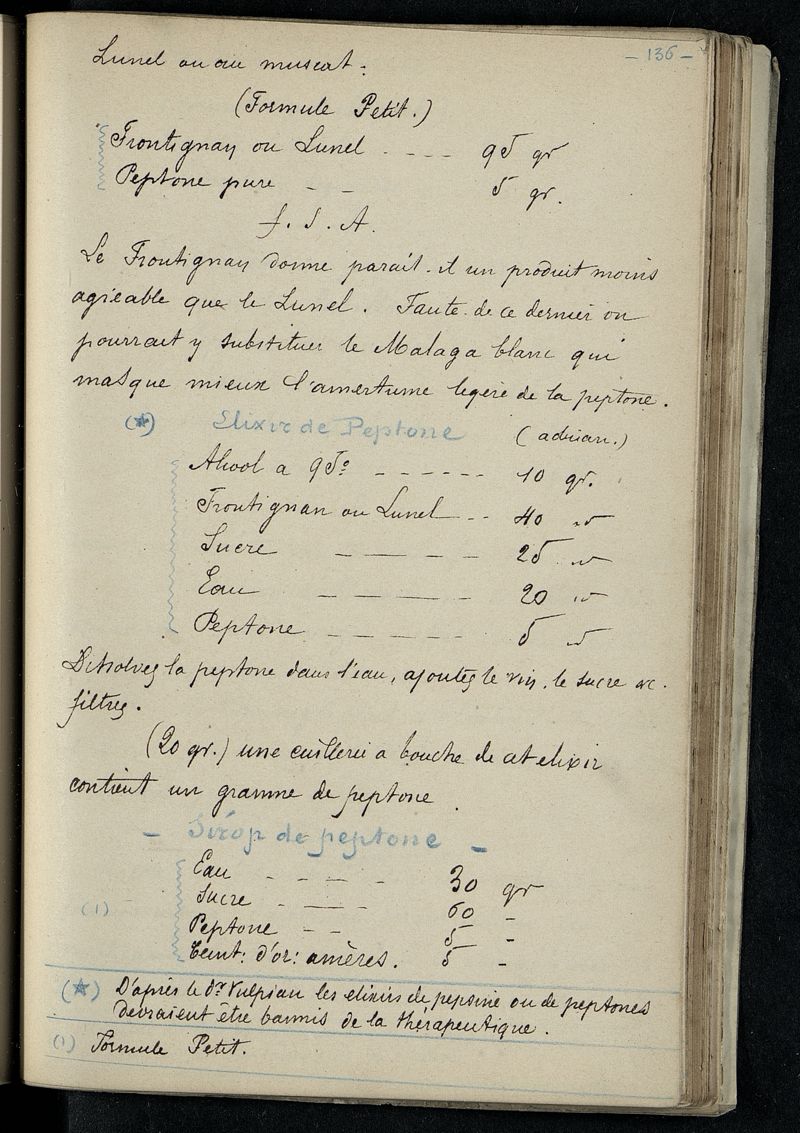 - 136 -
Lunel ou au muscat :
(Formule Petit.)
Frontignan ou Lunel . - - - 95 gr
Peptone pure - - 5 gr.
f. S. A.
Le Frontignan donne parait-il un produit moins
agréable que le Lunel. Faute de ce dernier on
pourrait y substituer le Malaga blanc qui
masque mieux l'amertume legère de la peptone.
(☆) Elixir de Peptone (adrian.)
Alcool a 95º - - - - - - 10 gr.
Frontignan ou Lunel - - 40 "
Sucre - - - - 25 "
Eau - - - - - 20 "
Peptone - - - - - 5 "
Dissolvez la peptone dans l'eau, ajoutez le vin, le sucre &c.
filtrez.
(20 gr.) une cuilleree a bouche de cet elixir
contient un gramme de peptone.
- Sirop de peptone -
Eau - - - - - 30 gr
Sucre - - - - 60 -
(1) Peptone - - 5 -
Teint: d'or: amères. 5 -
(☆) D'après le dr Vulpian les elixirs de pepsine ou de peptones
devraient être bannis de la thérapeutique.
(1) Formule Petit.